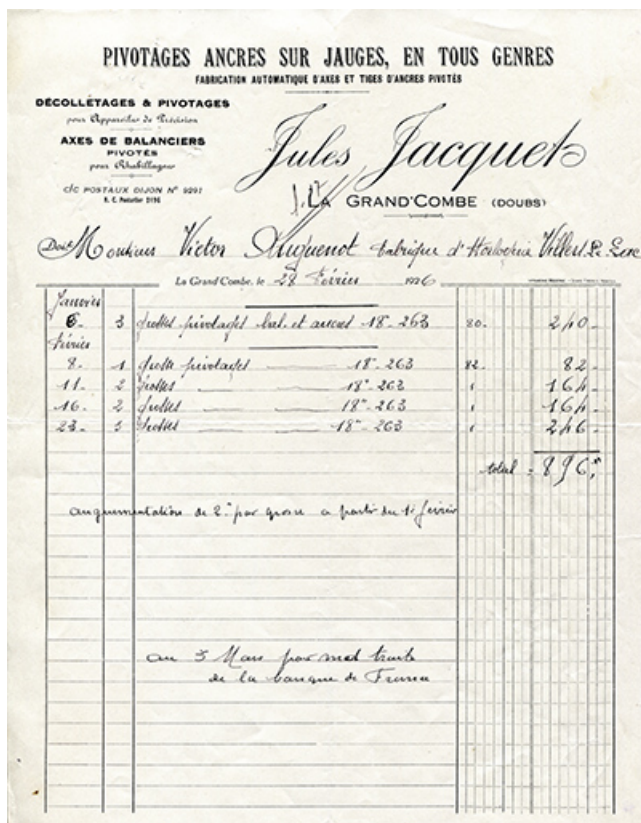 PIVOTAGES ANCRES SUR JAUGES, EN TOUS GENRES
FABRICATION AUTOMATIQUE D'AXES ET TIGES D'ANCRES PIVOTÉS
DÉCOLLETAGES & PIVOTAGES
pour Appareils de Précision
AXES DE BALANCIERS
PIVOTÉS
pour Rhabillages
C/C POSTAUX DIJON N° 9291
Jules Jacquet
LA GRAND'COMBE (DOUBS)
Doit Monsieur Victor Anguenot fabrique d'Horlogerie Villers le Lac
La Grand'Combe, le 28 Février 1926
Janvier
6- 3 grosses pivotages bal. et ancres 18- 263 80- 240-
Février
8- 1 grosse pivotages 18"- 263 82- 82-
11- 2 grosses 18"- 263 164-
16- 2 grosses 18"- 263 164-
23- 3 grosses 18"- 263 246-
total = 896
augumentation de 2." par grosse a partir du 1er février
au 3 Mars par mod traite
de la banque de France